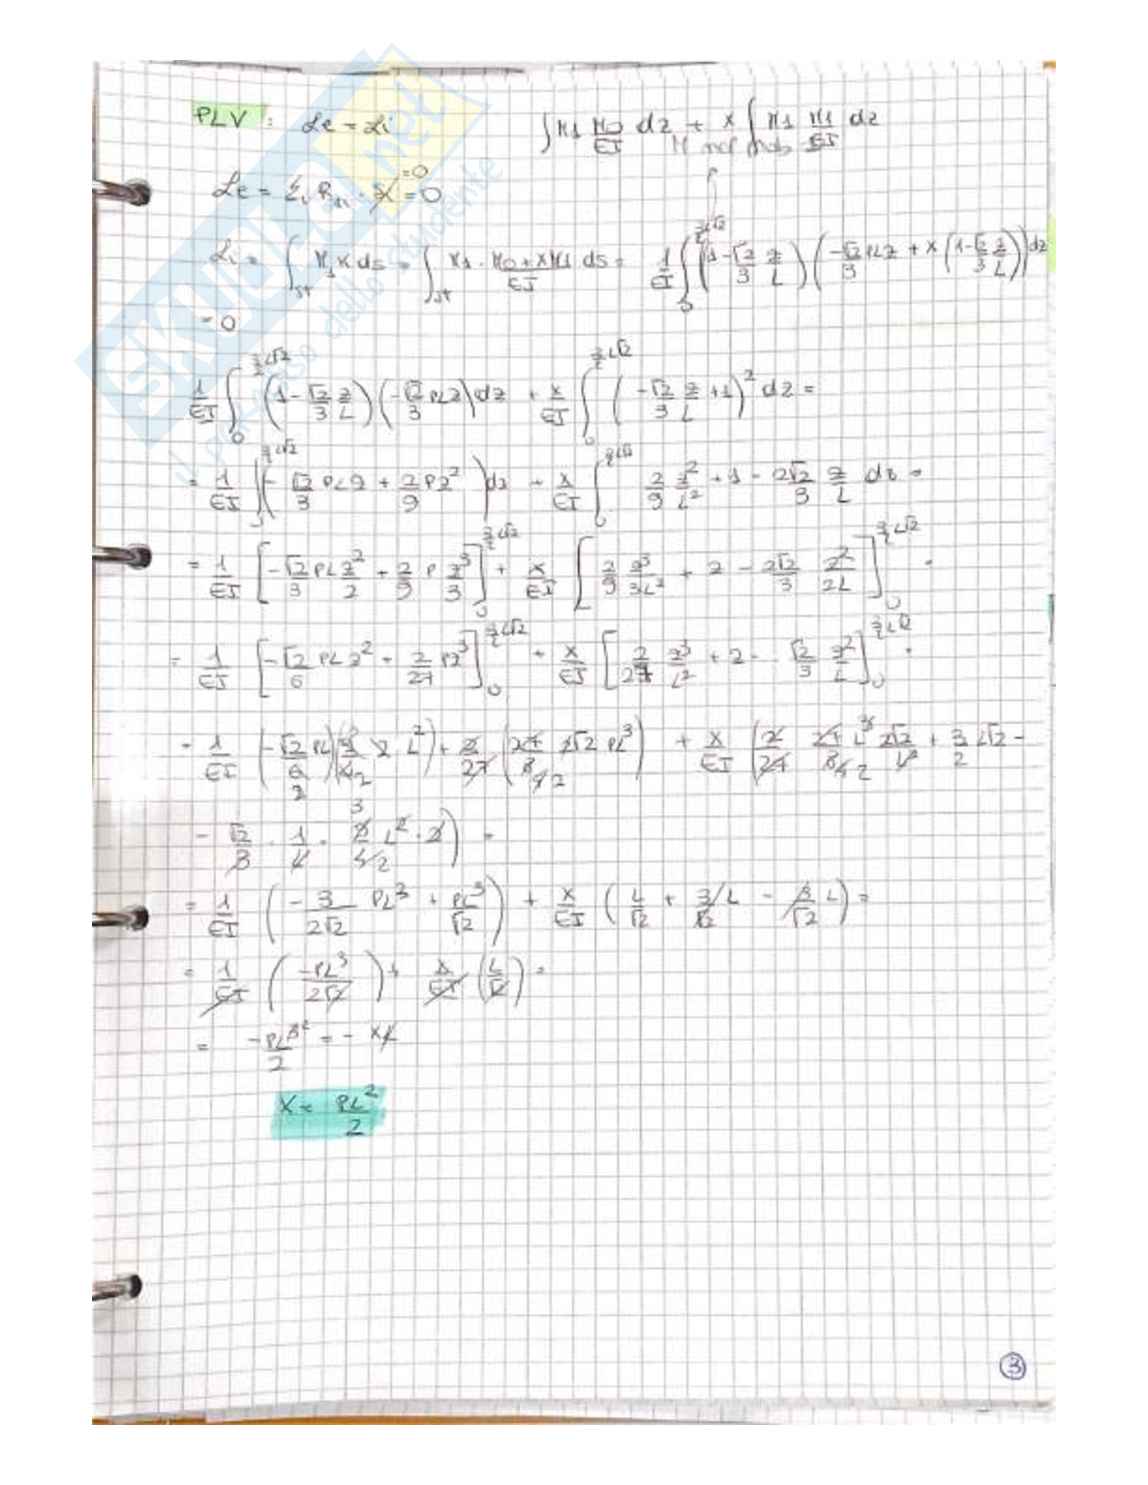 PLV: Le = Li     ∫ M1 M0/EI dz + x ∫ M1 M1/EI dz
Le = Σi Rni · s̸ = 0 = 0
Li = ∫st M1 x ds = ∫st M1 · M0 + XM1/EI ds = 1/EI ∫0^(3/2 L√2) (1 - √2/3 z/L) (-√2/3 PLz + x (1 - √2/3 z/L)) dz
= 0
1/EI ∫0^(3/2 L√2) (1 - √2/3 z/L) (-√2/3 PLz) dz + x/EI ∫0^(3/2 L√2) (-√2/3 z/L + 1)² dz =
= 1/EI ∫0^(3/2 L√2) (- √2/3 PLz + 2/9 Pz²) dz + x/EI ∫0^(3/2 L√2) 2/9 z²/L² + 1 - 2√2/3 z/L dz =
= 1/EI [-√2/3 PL z²/2 + 2/9 P z³/3]0^(3/2 L√2) + x/EI [2/9 z³/3L² + z - 2√2/3 z²/2L]0^(3/2 L√2) =
= 1/EI [-√2/6 PLz² + 2/27 Pz³]0^(3/2 L√2) + x/EI [2/27 z³/L² + z - √2/3 z²/L]0^(3/2 L√2) =
= 1/EI (-√2/6 PL) (9/4 2 L²) + 2/27 (27/8 2√2 PL³) + x/EI (2/27 27/8 L³ 2√2/L² + 3/2 L√2 -
- √2/3 · 1/L · 9/4 L² · 2) =
= 1/EI (- 3/2√2 PL³ + PL³/√2) + x/EI (L/√2 + 3/√2 L - 3/√2 L) =
= 1/EI (-PL³/2√2) + x/EI (L/√2) =
= -PL³/2 = - XL
X = PL²/2
3